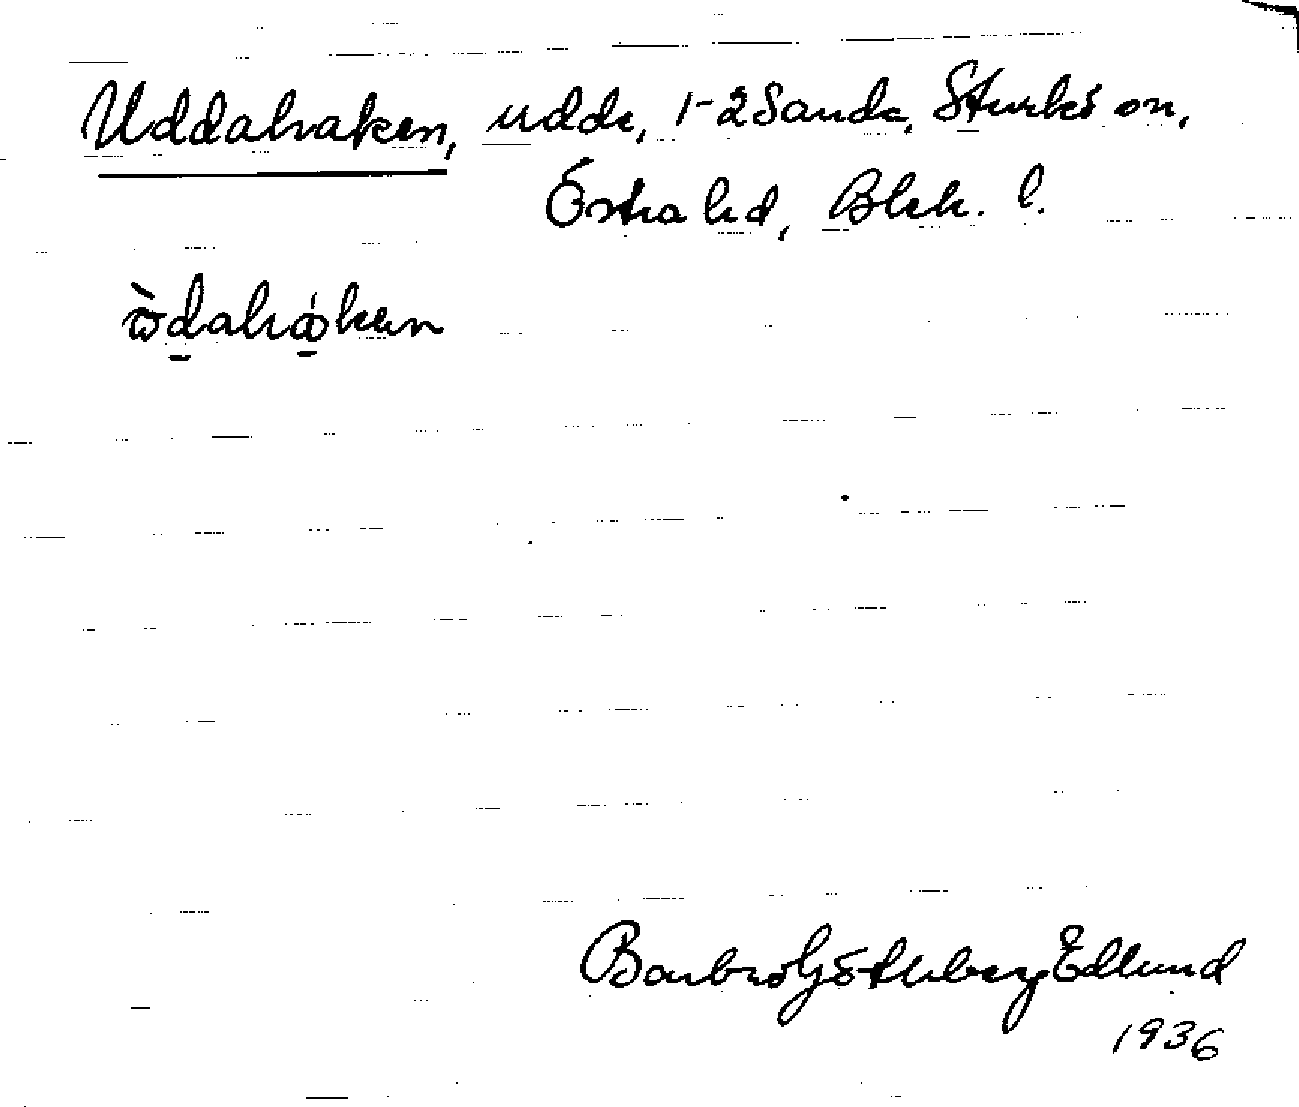 Uddahaken, udde, 1-2 Sanda, Sturkö sn,
Östra hd, Blek. l.
Barbro Götheberg Edlund
1936